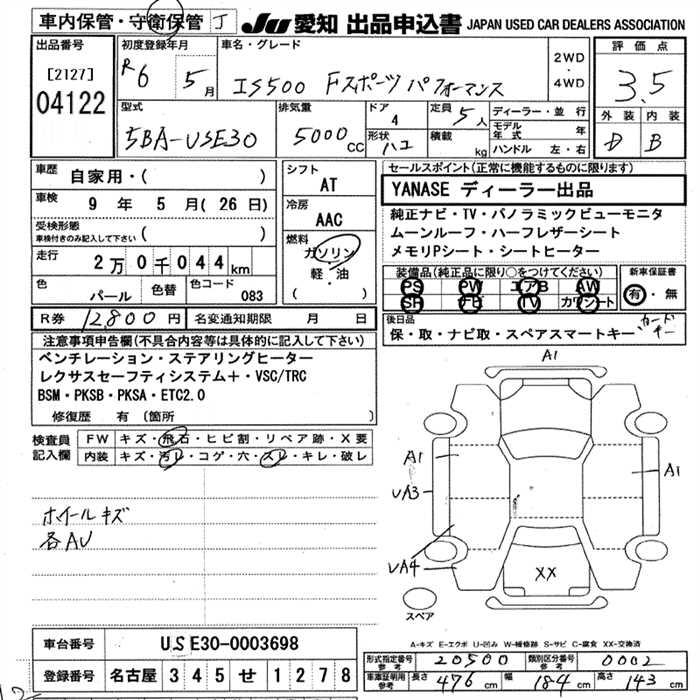 車内保管・守衛保管 J
JU 愛知 出品申込書 JAPAN USED CAR DEALERS ASSOCIATION
出品番号
[2127]
04122
初度登録年月
R6 5月
車名・グレード
IS500 Fスポーツ パフォーマンス
2WD
・
4WD
評価点
3.5
外装 内装
D B
型式
5BA-USE30
排気量
5000 CC
ドア
4
形状
ハコ
定員
5人
積載
kg
ディーラー・並行
モデル年式 年
ハンドル 左・右
車歴
自家用・( )
車検
9年 5月(26日)
受検形態
車検付きのみ記入して下さい ( )
走行
2万0千044km
色
パール
色替
色コード
083
シフト
AT
冷房
AAC
燃料
ガソリン
軽・油
( )
R券 12800円 名変通知期限 月 日
セールスポイント(正常に機能するものに限ります)
YANASE ディーラー出品
純正ナビ・TV・パノラミックビューモニタ
ムーンルーフ・ハーフレザーシート
メモリPシート・シートヒーター
装備品(純正品に限り○をつけてください)
PS PW エアB AW
SR TV カワシート
新車保証書
有・無
後日品
保・取・ナビ取・スペアスマートキー カードキー
注意事項申告欄(不具合内容等は具体的に記入して下さい)
ベンチレーション・ステアリングヒーター
レクサスセーフティシステム+・VSC/TRC
BSM・PKSB・PKSA・ETC2.0
修復歴 有(箇所
検査員記入欄
FW キズ・飛石・ヒビ割・リペア跡・X要
内装 キズ・汚レ・コゲ・穴・スレ・キレ・破レ
ホイールキズ
各AU
A1
A1
A1
UA3
UA4
XX
スペア
A-キズ E-エクボ U-凹み W-補修跡 S-サビ C-腐食 XX-交換済
車台番号 USE30-0003698
登録番号 名古屋 345 せ 1278
形式指定番号 参考 20500 類別区分番号 参考 0002
車庫証明用 参考 長さ 476cm 幅 184cm 高さ 143cm